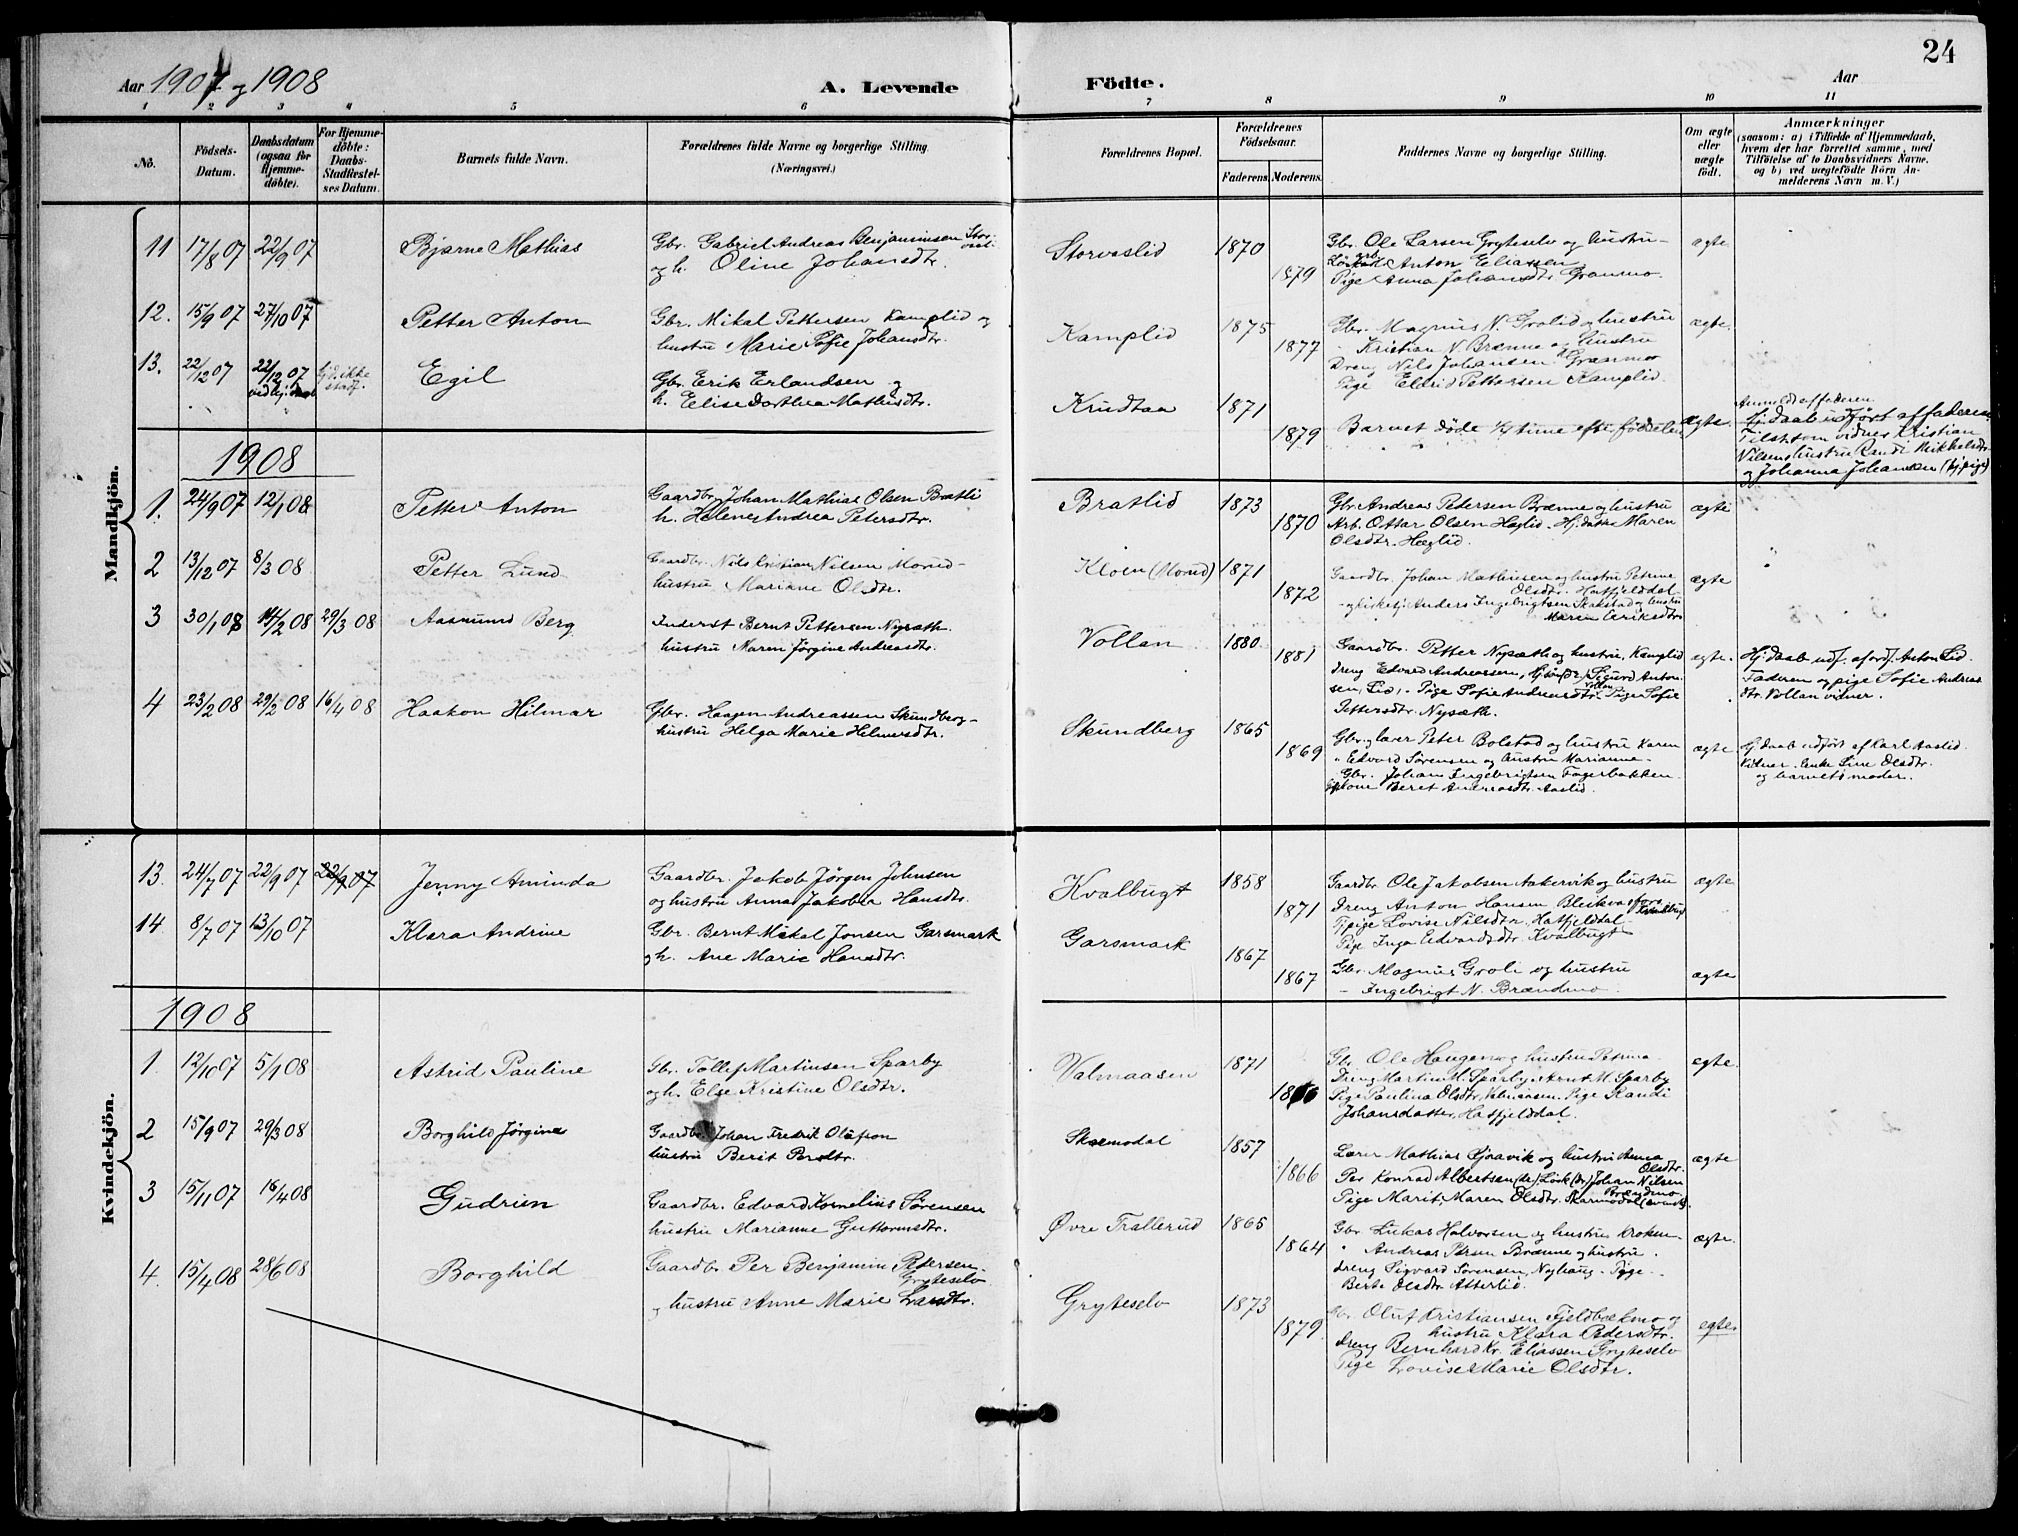 24
Aar 1907 og 1908
A. Levende
Födte.
Aar
1 2 3 4 5 6 7 8 9 10 11
No.
Födsels-
Datum.
Daabsdatum
(ogsaa for
Hjemme-
döbte).
For Hjemme-
döbte:
Daabs-
Stadfæstel-
ses Datum.
Barnets fulde Navn.
Forældrenes fulde Navne og borgerlige Stilling.
(Næringsvei.)
Forældrenes Bopæl.
Forældrenes
Födselsaar.
Faderens.
Moderens.
Faddernes Navne og borgerlige Stilling.
Om ægte
eller
uægte
födt.
Anmærkninger
(saasom: a) i Tilfælde af Hjemmedaab,
hvem der har forrettet samme, med
Tilföielse af to Daabsvidners Navne,
og b) ved uægtefödte Börn An-
melderens Navn m. V.)
Mandkjön.
11 17/8 07 22/9 07 Bjarne Mathias
Gbr. Gabriel Andreas Benjaminsen
og h. Oline Johansdtr.
Storvaslid 1870 1879
Gbr. Ole Larsen Gryteselv og hustru
Anton Eliassen
Pige Anna Johansdtr. Granmo.
ægte
12. 15/9 07 27/10 07 Petter Anton
Gbr. Mikal Pettersen Kamplid og
hustru Marie Sofie Johansdtr.
Kamplid 1875 1877
Gbr. Magnus N. Grolid og hustru
Kristian N. Brænne og hustru
Dreng Nils Johansen Granmo
Pige Eldrid Pettersen Kamplid.
ægte.
13. 22/12 07 22/12 07 Egil
Gbr. Erik Erlandsen og
h. Elise Dorthea Mathisdtr.
Krudtaa 1871 1879
Barnet døde time efter fødselen
ægte.
Anmeldt af faderen.
Hj.daab udført af faderen
Tilst. som vidner Kristian
Nilsens hustru Randi Mikkelsdtr.
og Johanna Johansen (tj.pige)
1908
1. 24/9 07 12/1 08 Petter Anton
Gaardbr. Johan Mathias Olsen Bratli
h. Helene Andrea Petersdtr.
Bratlid 1873 1870
Gbr. Andreas Petersen Brænne og hustru
Arb. Ottar Olsen Hæglid. Maren
Olsdtr. Hæglid.
ægte
2 13/12 07 8/3 08 Petter Lund
Gaardbr. Nils Kristian Nilsen Morud
hustru Mariane Olsdtr.
Kloen (Morud) 1871 1872
Gaardbr. Johan Mathisen og hustru Petrine
Olsdtr. Hatfjelddal
Anders Ingebrigtsen Stakstad og hustru
Maren Eriksdtr
ægte
3 30/1 08 14/2 08 29/3 08 Aasmund Berg
Inderst Bernt Pettersen Nysæth
hustru Maren Jørgine Andreasdtr.
Vollan 1880 1881
Gaardbr. Petter Nysæth og hustru, Kamplid
dreng Edvard Andreassen, Sigurd Anton-
sen, Lid. Pige Sofie Andreasdtr. Vollan Pige Sofie
Pettersdtr. Nysæth.
ægte.
Hj.daab udf. af ordf. Anton Lid.
Faderen og pige Sofie Andreas
dtr. Vollan vidner.
4 23/2 08 29/2 08 16/4 08 Haakon Hilmar
Gbr. Haagen Andreassen Skundberg
hustru Helga Marie Helmersdtr.
Skundberg 1865 1869
Gbr. og lærer Peter Bolstad og hustru Karen
" Edvard Sørensen og hustru Marianne
Gbr. Johan Ingebrigtsen Fagerbakken
Beret Andreasdtr. Aaslid.
ægte
Hj.daab udført af Karl Aaslid.
Vidner enke Line Olsdtr.
og barnets moder.
Kvindekjön.
13. 24/7 07 22/9 07 22/9 07 Jenny Aminda
Gaardbr. Jakob Jørgen Johnsen
og hustru Anna Jakobea Hansdtr.
Kvalbugt 1858 1871
Gaardbr Ole Jakobsen Aakervik og hustru
Dreng Anton Hansen Bleikvasfors
Tjpige Lovise Nilsdtr. Hatfjelddal
Pige Inga Edvardsdtr. Kvalbugt
ægte
14 8/7 07 13/10 07 Klara Andrine
Gbr. Bernt Mikal Jonsen Garsmark
og h. Ane Marie Hansdtr.
Garsmark 1867 1867
Gbr. Magnus Groli og hustru
– Ingebrigt N. Brændmo.
ægte
1908
1. 12/10 07 5/1 08 Astrid Pauline
Gbr. Tollef Martinsen Sparby
og h. Else Kristine Olsdtr.
Valmaasen 1871
Gbr. Ole Haugen og hustru Petrina
Dreng Martin M. Sparby. Arnt M. Sparby
Pige Paulina Olsdtr. Valmaasen. Pige Randi
Johansdatter, Hatfjelddal.
ægte.
2 15/9 07 29/3 08 Borghild Jørgine
Gaardbr. Johan Fredrik Olufson
hustru Berit Persdtr.
Skarmodal 1857 1866
Lærer Mathias Sjaavik og hustru Anna
Olsdtr.
Per Konrad Albertsen (dr.) Johan Nilsen
Brændmo
Pige Marit Maren Olsdtr. Skarmodal
ægte
3 15/11 07 16/4 08 Gudrun
Gaardbr. Edvard Kornelius Sørensen
hustru Marianne Guttormsdtr.
Øvre Trallerud 1865 1864
Gbr. Lukas Halvorsen og hustru Kroken
" Andreas Persen Brænne og hustru.
dreng Sigvard Sørensen, Nyhaug. Pige
Berte Olsdtr. Atterlid.
ægte.
4. 15/4 08 28/6 08 Borghild
Gaardbr Per Benjamin Pedersen
Gryteselv
og hustru Anne Marie Larsdtr.
Gryteselv 1873 1879
Gbr. Oluf Kristiansen Fjeldbækmo og
hustru Klara Pedersdtr.
dreng Bernhard Kr. Eliassen Gryteselv
Pige Lovise Marie Olsdtr.
ægte